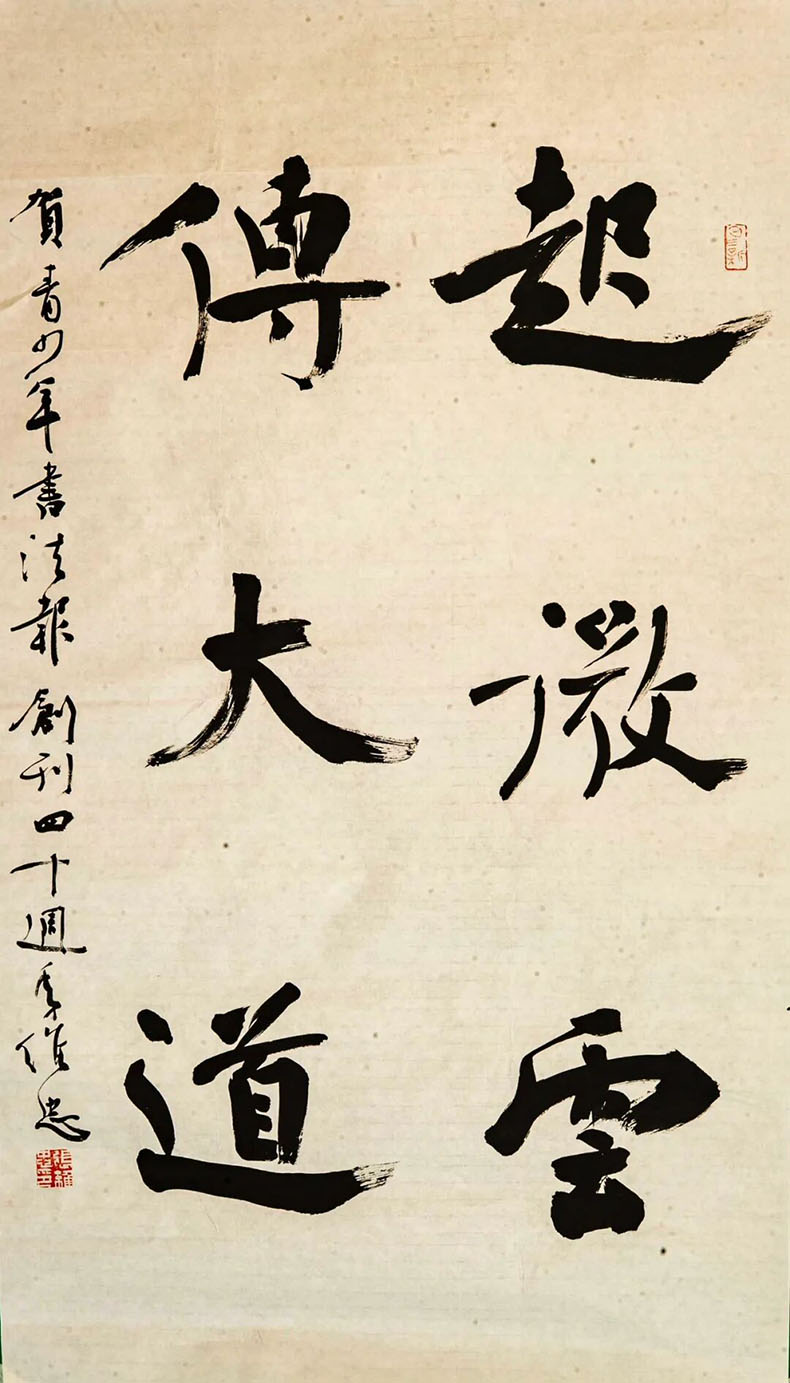 起微雲
傳大道
賀青少年書法報創刊四十週年維忠
張維忠印